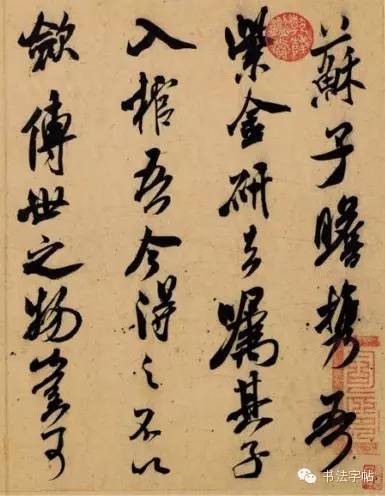 蘇子瞻携吾
紫金研去嘱其子
入棺吾今得之不以
歛傳世之物豈可
书法字帖